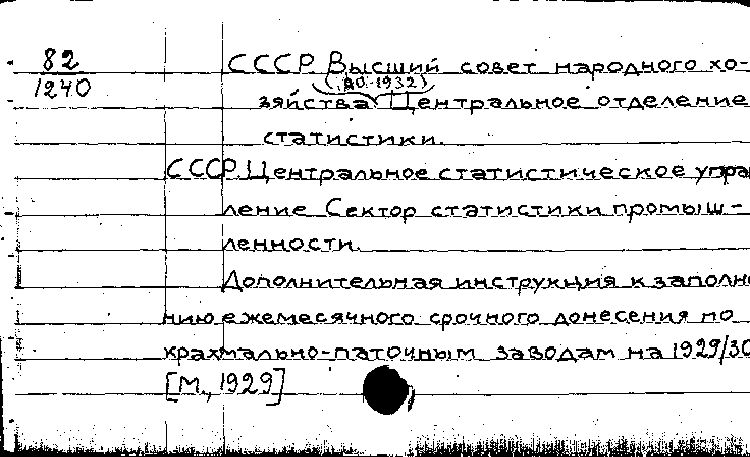 82
1240
СССР. Высший совет народного хо-
(     -1932)
зяйства. Центральное отделение
статистики.
СССР. Центральное статистическое управ
ление Сектор статистики промыш-
ленности.
Дополнительная инструкция к заполне
нию ежемесячного срочного донесения по
крахмально-паточным заводам на 1929/30
[М., 1929]